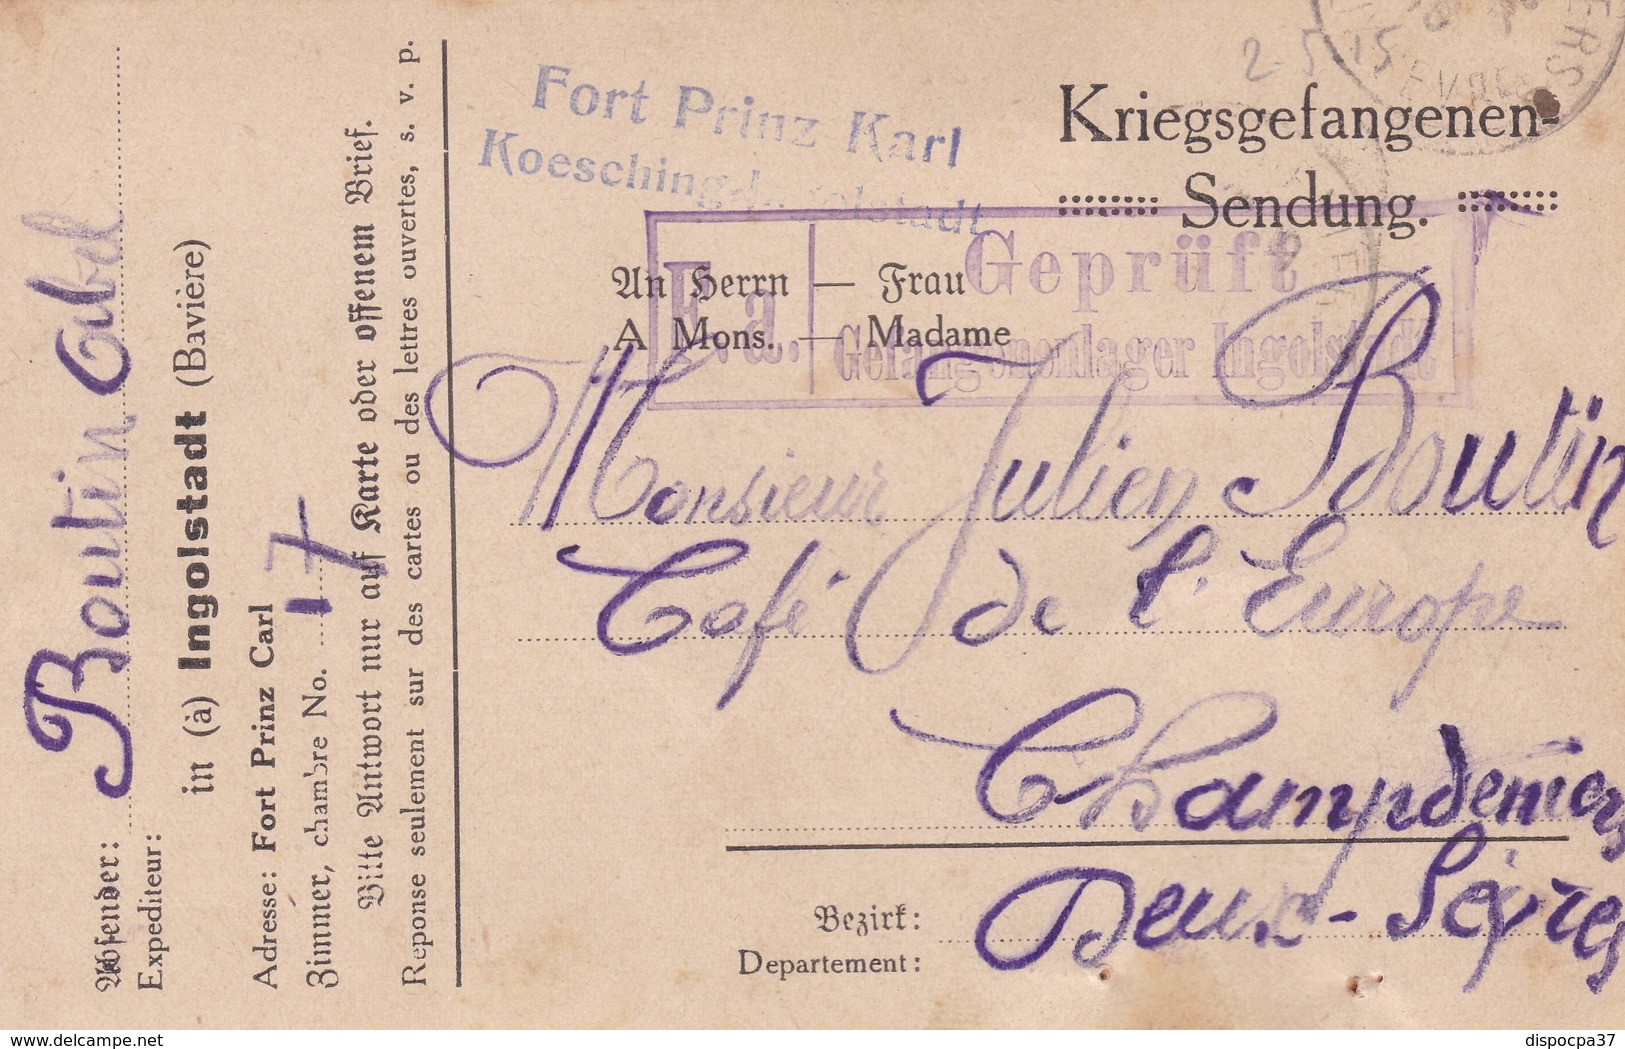 Absender: Boutin Abel
Expéditeur:
in (à) Ingolstadt (Bavière)
Adresse: Fort Prinz Carl
Zimmer, chambre No. 17
Bitte Antwort nur auf Karte oder offenem Brief.
Reponse seulement sur des cartes ou des lettres ouvertes, s. v. p.
Fort Prinz Karl
Koesching-Ingolstadt
2 5 15
Kriegsgefangenen-
Sendung.
F. a.
Geprüft
Gefangenenlager Ingolstadt
An Herrn — Frau
A Mons. — Madame
Monsieur Julien Boutin
Café de l'Europe
Champdeniers
Bezirk:
Departement:
Deux-Sèvres
www.delcampe.net
dispocpa37